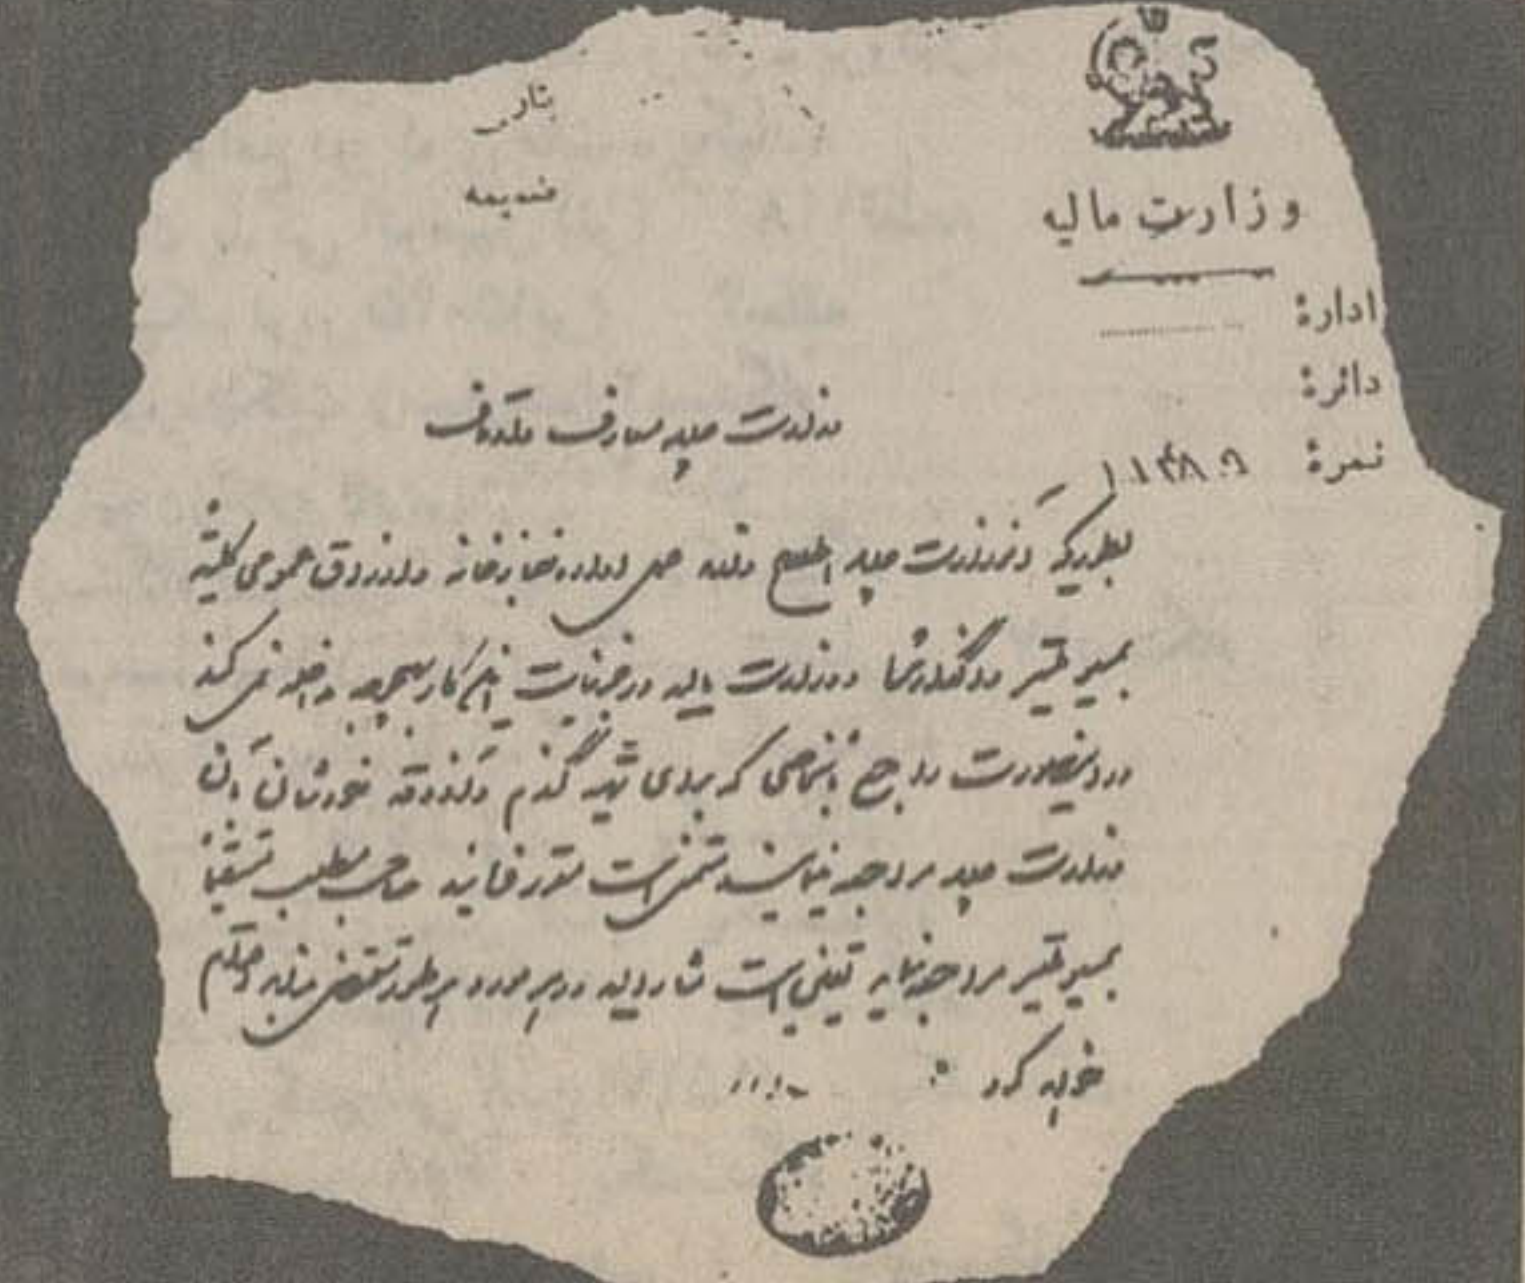 وزارت مالیه
تاریخ
ضمیمه
ادارهٔ
دائرهٔ
نمرهٔ
وزارت جلیله معارف و اوقاف
بطوریکه آن وزارت جلیله اطلاع دارند عمل اداره خبازخانه و ارزاق عمومی کلیة
بمسیو ملیتر واگذار شده و وزارت مالیه در جزئیات این کار بهیچوجه مداخله نمی کند
در اینصورت راجع باشخاصی که برای تهیه گندم و آذوقه خودشان بآن
وزارت جلیله مراجعه مینمایند متمنی است مقرر فرمایند صاحب مطلب مستقیماً
بمسیو ملیتر مراجعه نماید یقینی است مشارالیه در هر مورد هر طور مقتضی بداند اقدام
خواهد کرد